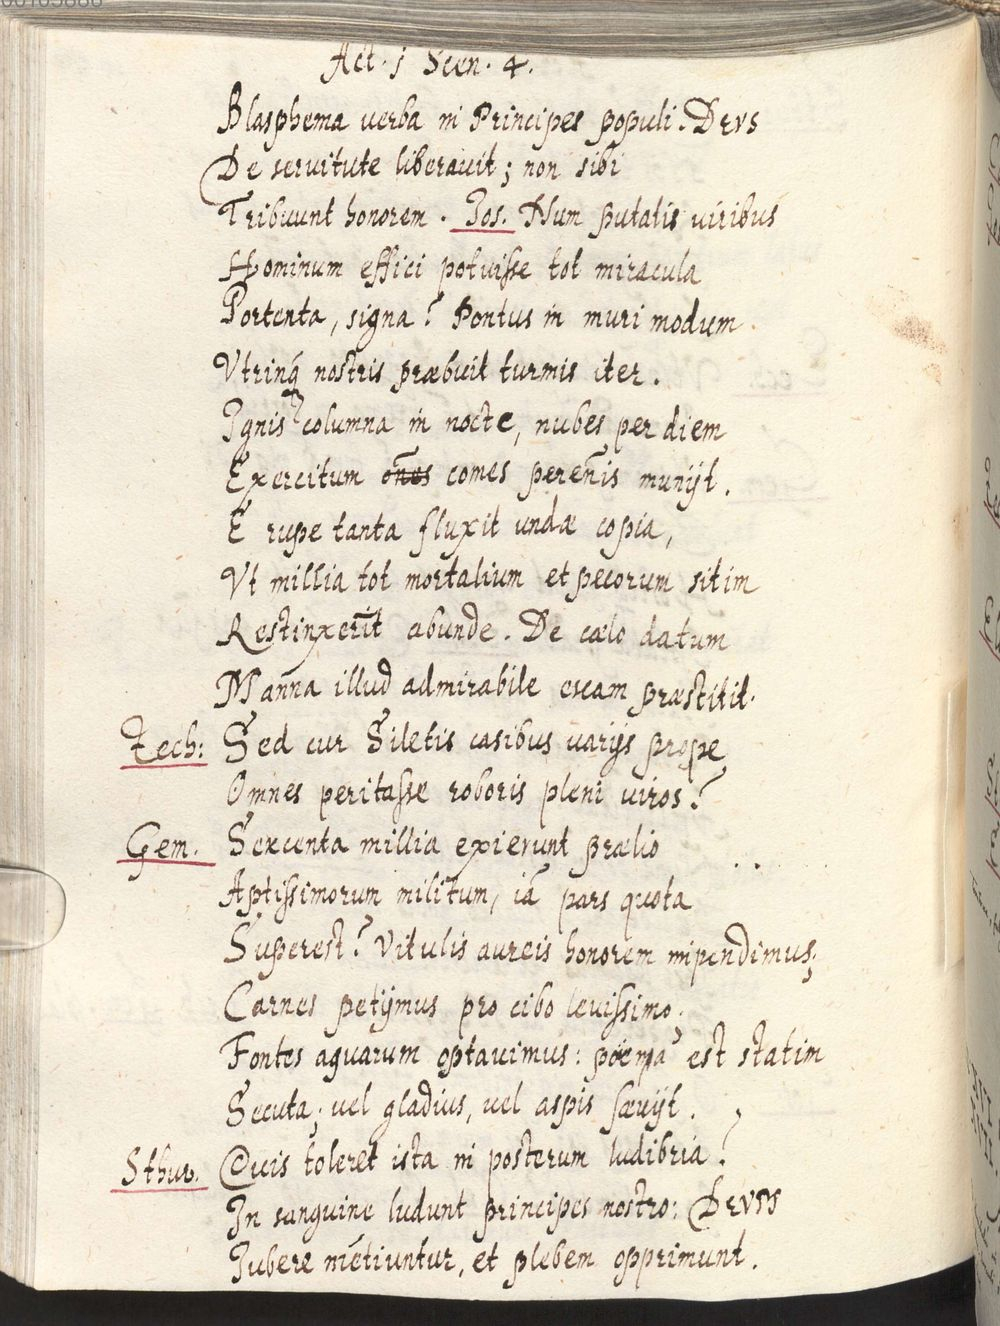 Act. 1 Scen. 4.
Blasphema uerba in Principes populi. DEVS
De seruitute liberauit; non sibi
Tribuunt honorem. Jos. Num putatis uiribus
Hominum effici potuisse tot miracula
Portenta, signa? Pontus in muri modum
Vtrinq́ nostris præbuit turmis iter.
Ignis columna in nocte, nubes per diem
Exercitum om̄es comes pereñis muniit.
E rupe tanta fluxit undæ copia,
Vt millia tot mortalium et pecorum sitim
Restinxerit abunde. De cælo datum
Mañna illud admirabile escam præstitit.
Zech: Sed cur Siletis casibus uarijs prope
Omnes peritasse roboris pleni uiros?
Gem. Sexcenta millia exierunt prælio
Aptissimorum militum, iā pars quota
Superest? Vitulis aureis honorem impendimus;
Carnes petijmus pro cibo leuissimo;
Fontes aquarum optauimus: poena est statim
Secuta; uel gladius, uel aspis sæuijt.
Sthur. Quis toleret ista in posterum ludibria?
In sanguine ludunt principes nostro: DEVM
Iubere mentiuntur, et plebem opprimunt.